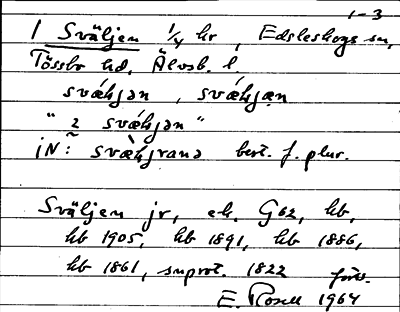 1-3
1 Sväljen 1/4 hr, Edsleskogs sn,
Tössbo hd, Älvsb. l
sváḱjən, sváḱjæn
" 2 sváḱjən "
iN: svæ̀ḱjrana best. f. plur.
Sväljen jr, ek. G62, kb,
kb 1905, kb 1891, kb 1886,
kb 1861, suprot. 1822 förs.
E. Rosell 1964